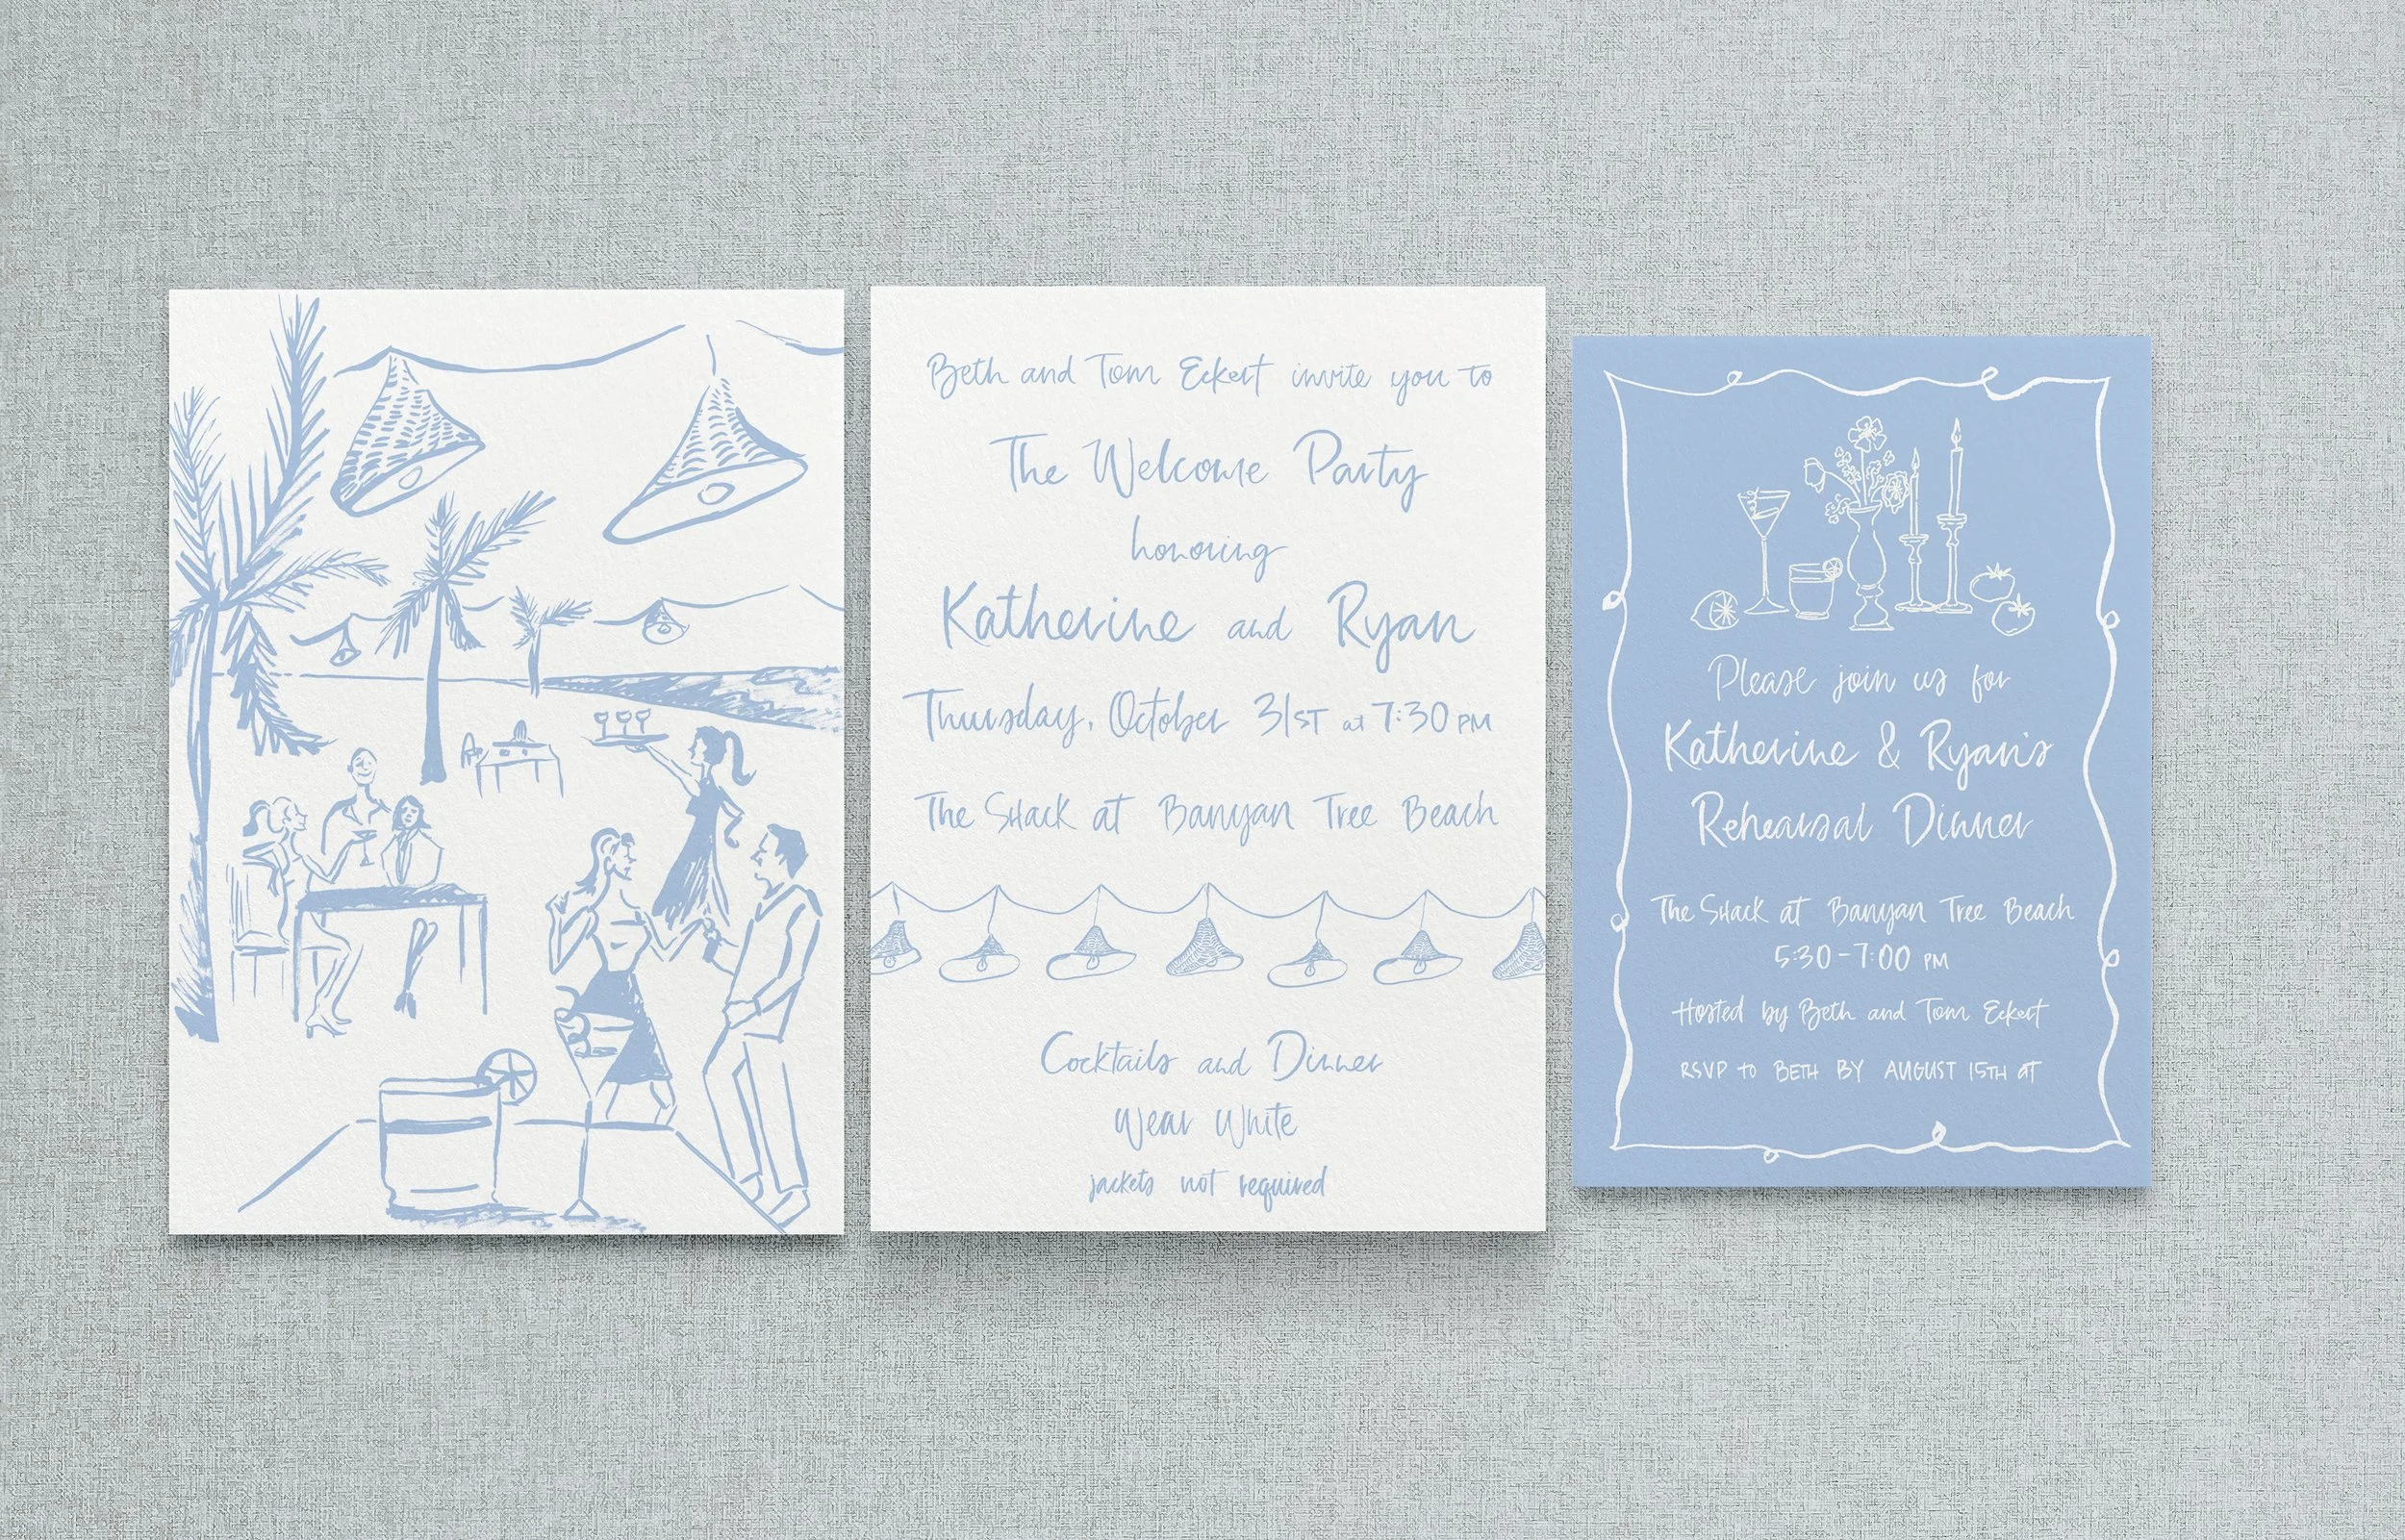 Beth and Tom Eckert invite you to
The Welcome Party
honoring
Katherine and Ryan
Thursday, October 31ST at 7:30 PM
The Shack at Banyan Tree Beach
Cocktails and Dinner
Wear White
jackets not required
Please join us for
Katherine & Ryan's
Rehearsal Dinner
The Shack at Banyan Tree Beach
5:30-7:00 PM
Hosted by Beth and Tom Eckert
RSVP to BETH BY AUGUST 15TH AT